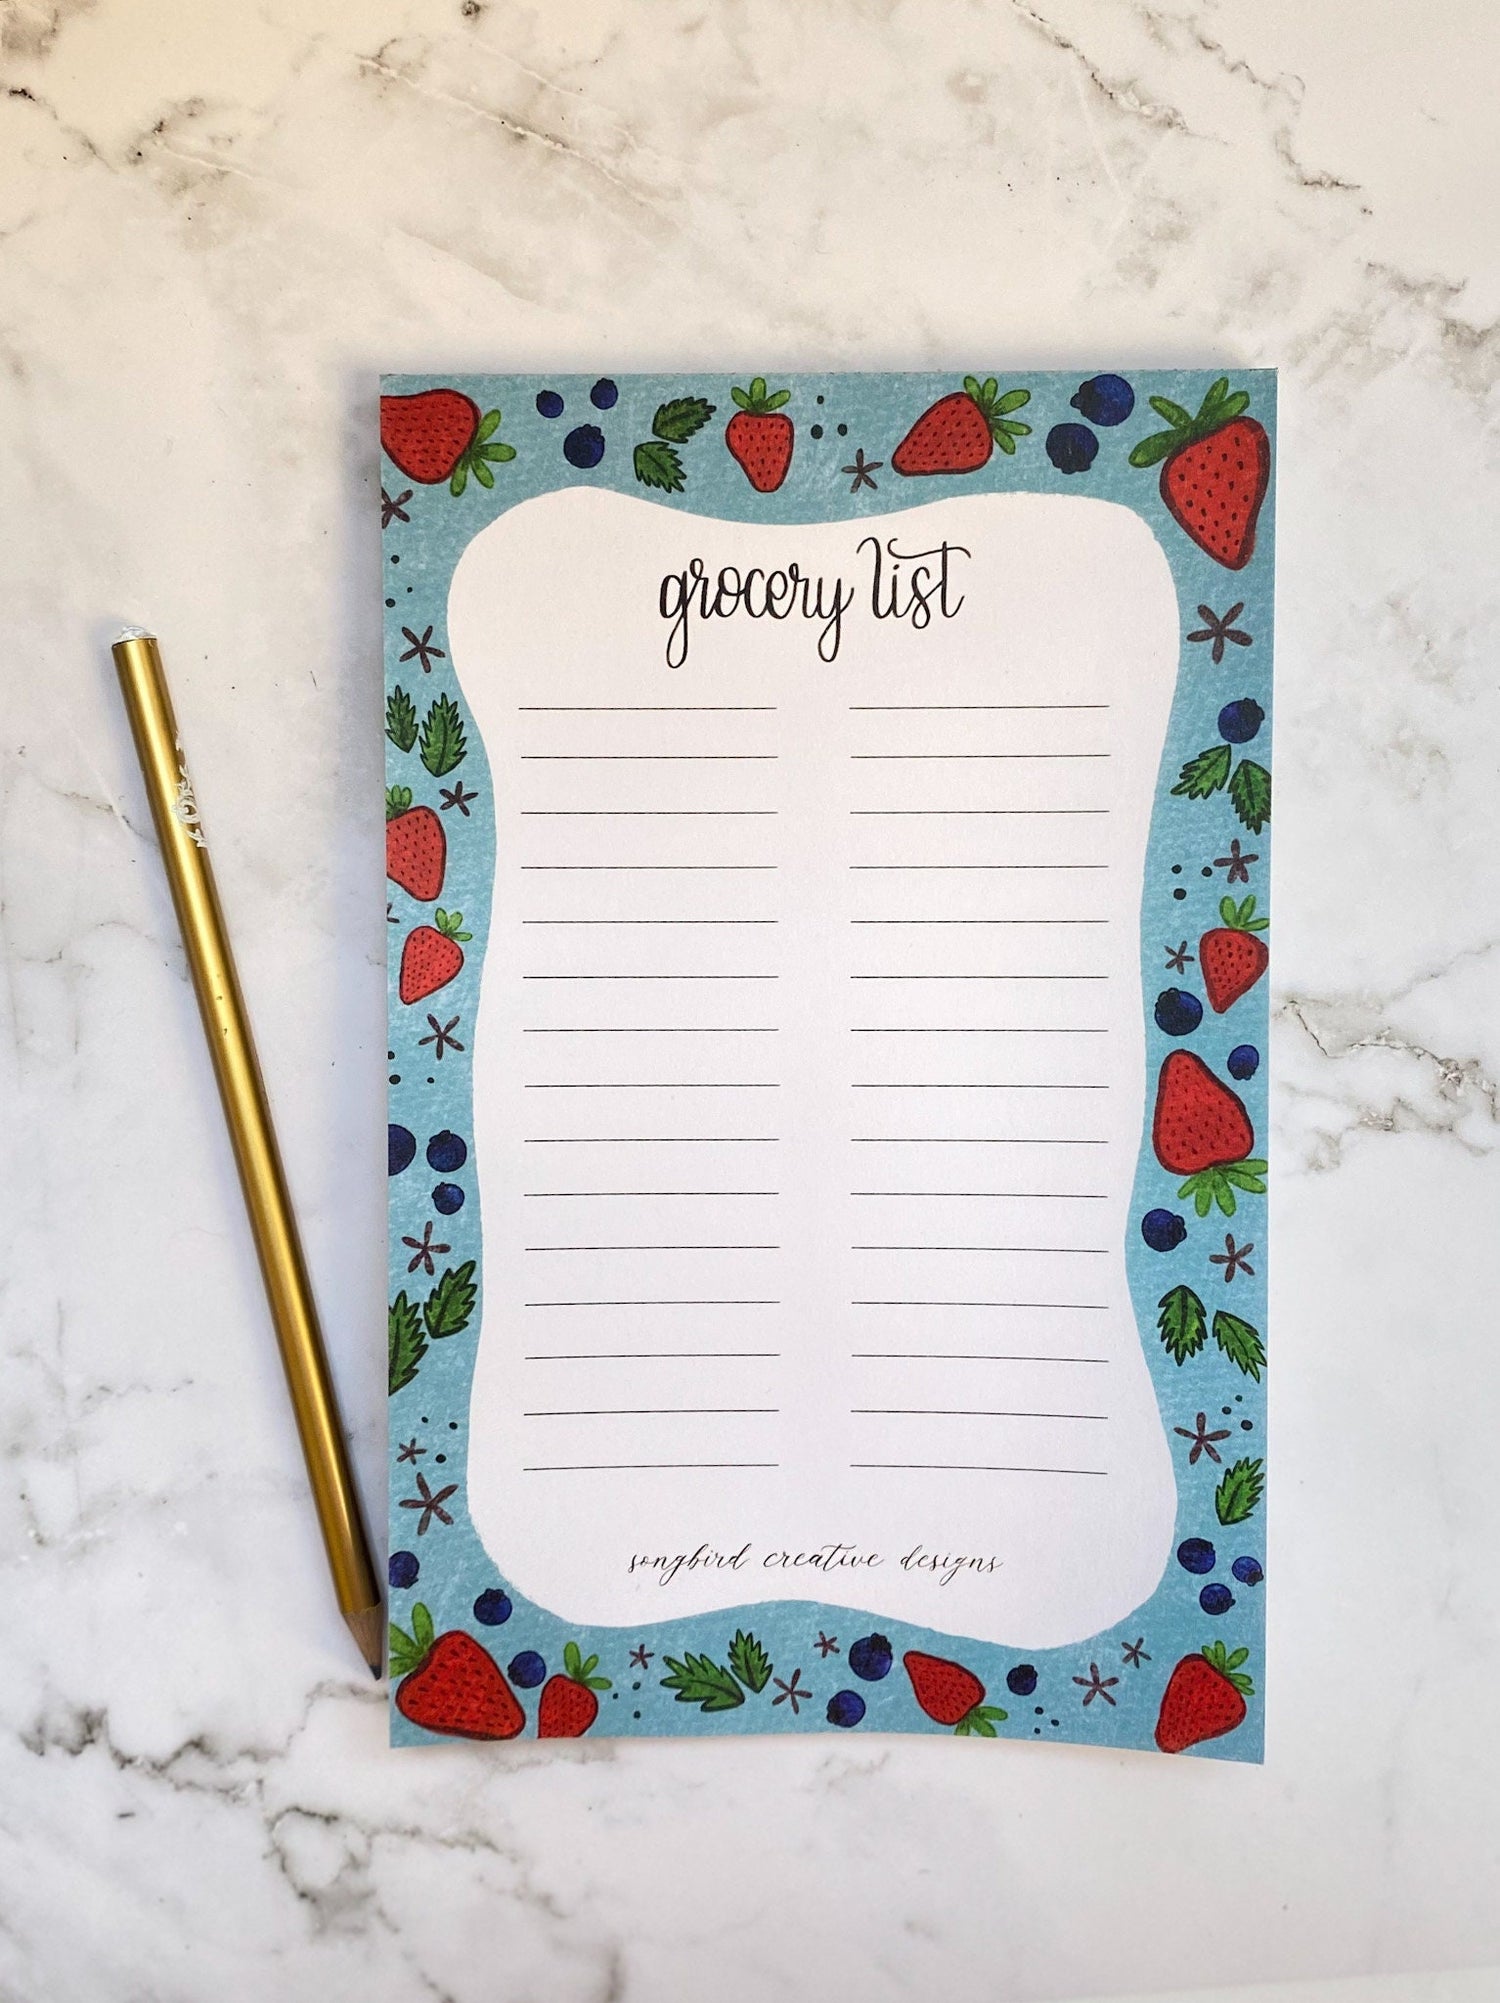 grocery list
songbird creative designs